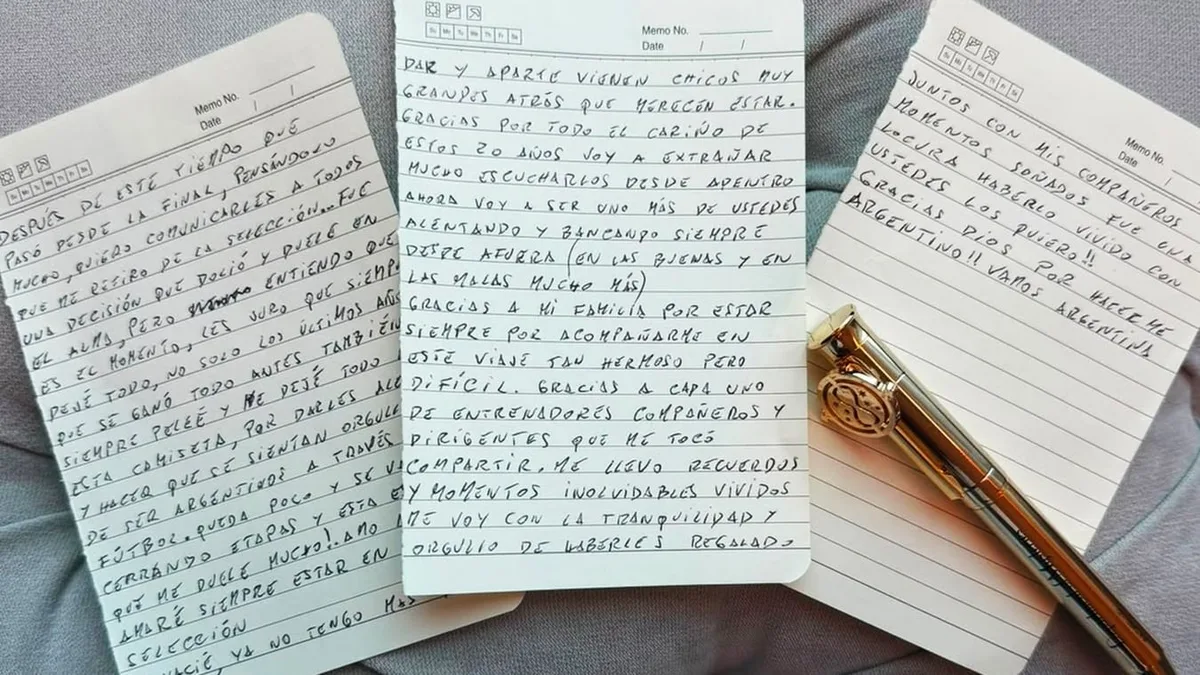 Memo No.
Date / /
DESPUÉS DE ESTE TIEMPO QUE
PASÓ DESDE LA FINAL, PENSÁNDOLO
MUCHO, QUIERO COMUNICARLES A TODOS
QUE ME RETIRO DE LA SELECCIÓN... FUE
UNA DECISIÓN QUE DOLIÓ Y DUELE EN
EL ALMA, PERO ENTIENDO QUE
ES EL MOMENTO, LES JURO QUE SIEMP
DEJÉ TODO, NO SOLO LOS ÚLTIMOS AÑOS
QUE SE GANÓ TODO ANTES TAMBIÉN
SIEMPRE PELEÉ Y ME DEJÉ TODO
ESTA CAMISETA, POR DARLES ALE
Y HACER QUE SE SIENTAN ORGULL
DE SER ARGENTINOS A TRAVÉS
FÚTBOL. QUEDA POCO Y SE VA
CERRANDO ETAPAS Y ESTA E
QUE ME DUELE MUCHO!. AMO
AMARÉ SIEMPRE ESTAR EN
SELECCIÓN
VACIÉ, YA NO TENGO MAS
Su Mo Tu We Th Fr Sa
Memo No.
Date / /
DAR Y APARTE VIENEN CHICOS MUY
GRANDES ATRÁS QUE MERECEN ESTAR.
GRACIAS POR TODO EL CARIÑO DE
ESTOS 20 AÑOS VOY A EXTRAÑAR
MUCHO ESCUCHARLOS DESDE ADENTRO
AHORA VOY A SER UNO MÁS DE USTEDES
ALENTANDO Y BANCANDO SIEMPRE
DESDE AFUERA (EN LAS BUENAS Y EN
LAS MALAS MUCHO MÁS)
GRACIAS A MI FAMILIA POR ESTAR
SIEMPRE POR ACOMPAÑARME EN
ESTE VIAJE TAN HERMOSO PERO
DIFÍCIL. GRACIAS A CADA UNO
DE ENTRENADORES COMPAÑEROS Y
DIRIGENTES QUE ME TOCÓ
COMPARTIR. ME LLEVO RECUERDOS
Y MOMENTOS INOLVIDABLES VIVIDOS
ME VOY CON LA TRANQUILIDAD Y
ORGULLO DE HABERLES REGALADO
Memo No.
Date /
JUNTOS CON MIS COMPAÑEROS
MOMENTOS SOÑADOS FUE UNA
LOCURA HABERLO VIVIDO CON
USTEDES LOS QUIERO!!
GRACIAS DIOS POR HACERME
ARGENTINO!! VAMOS ARGENTINA